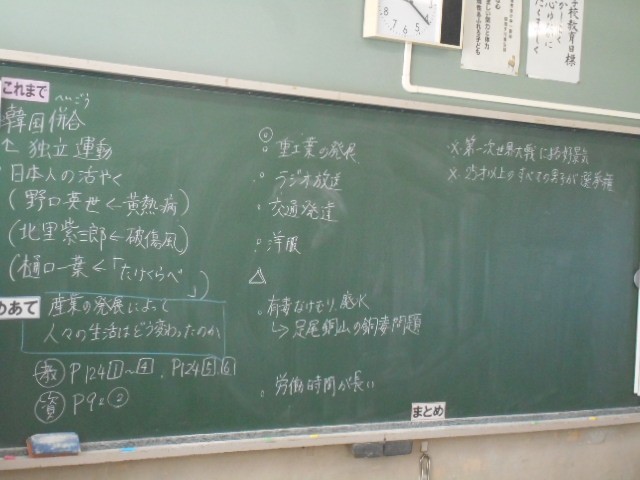 これまで
へいごう
韓国併合
↑ 独立運動
日本人の活やく
(野口英世←黄熱病)
(北里柴三郎←破傷風)
(樋口一葉←「たけくらべ」)
めあて
産業の発展によって
人々の生活はどう変わったのか
教 P124 1~4、P124 5 6
資 P92 ②
◎
。重工業の発展
。ラジオ放送
。交通発達
。洋服
△
。有毒なけむり、廃水
↳足尾銅山の鉱毒問題
。労働時間が長い
※第一次世界大戦による好景気
※25才以上のすべての男子が選挙権
まとめ
学校教育目標
8 7 6 5